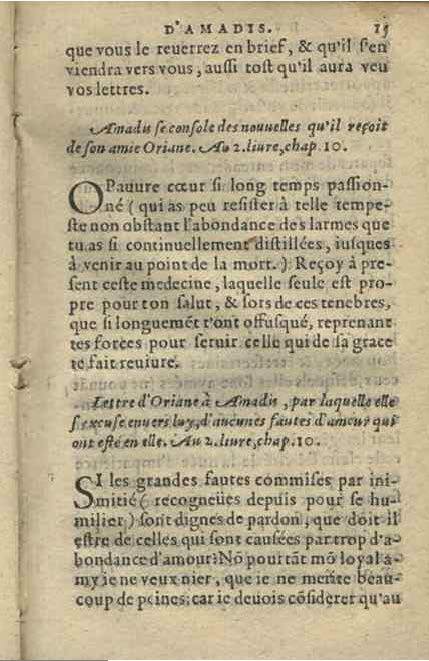 D'AMADIS. 15
que vous le reuerrez en brief, & qu'il s'en
viendra vers vous, aussi tost qu'il aura veu
vos lettres.
Amadis se console des nouuelles qu'il reçoit
de son amie Oriane. Au 2. liure, chap. 10.
O Pauure cœur si long temps passion-
né ( qui as peu resister à telle tempe-
ste non obstant l'abondance des larmes que
tu as si continuellement distillées, iusques
à venir au point de la mort. ) Reçoy à pre-
sent ceste medecine, laquelle seule est pro-
pre pour ton salut, & sors de ces tenebres,
que si longuemẽt t'ont offusqué, reprenant
tes forces pour seruir celle qui de sa grace
te fait reuiure.
Lettre d'Oriane à Amadis, par laquelle elle
s'excuse enuers luy, d'aucunes fautes d'amour qui
ont esté en elle. Au 2. liure, chap. 10.
SI les grandes fautes commises par ini-
mitié ( recogneües depuis pour se hu-
milier ) sont dignes de pardon, que doit il
estre de celles qui sont causées par trop d'a-
bondance d'amour? Nõ pourtãt mõ loyal a-
my ie ne veux nier, que ie ne merite beau-
coup de peines: car ie deuois cõsiderer qu'au